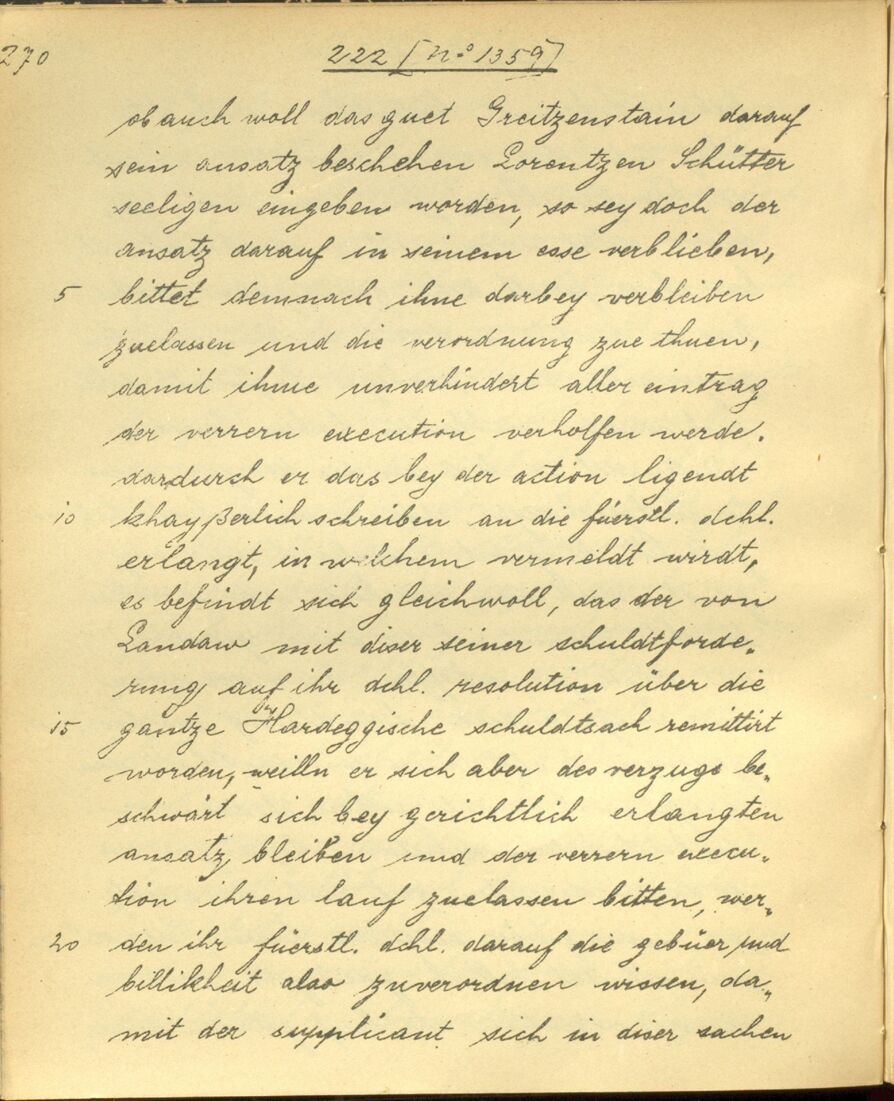 270
222 [Nº 1359]
ob auch woll das guet Greitzenstain darauf
sein ansatz beschehen Lorentzen Schütter
seeligen eingeben worden, so sey doch der
ansatz darauf in seinem esse verblieben,
5 bittet demnach ihne darbey verbleiben
zuelassen und die verordnung zue thuen,
damit ihme unverhindert aller eintrag
der verrern execution verholfen werde.
dardurch er das bey der action ligendt
10 khayßerlich schreiben an die füerstl. dchl.
erlangt, in welchem vermeldt wirdt,
es befindt sich gleichwoll, das der von
Landaw mit diser seiner schuldtforde„
rung auf ihr dchl. resolution über die
15 gantze Hardeggische schuldtsach remittirt
worden, weilln er sich aber des verzugs be„
schwärt sich bey gerichtlich erlangten
ansatz bleiben und der verrern execu„
tion ihren lauf zuelassen bitten, wer„
20 den ihr füerstl. dchl. darauf die gebüer und
billikheit also zuverordnen wissen, da„
mit der supplicant sich in diser sachen